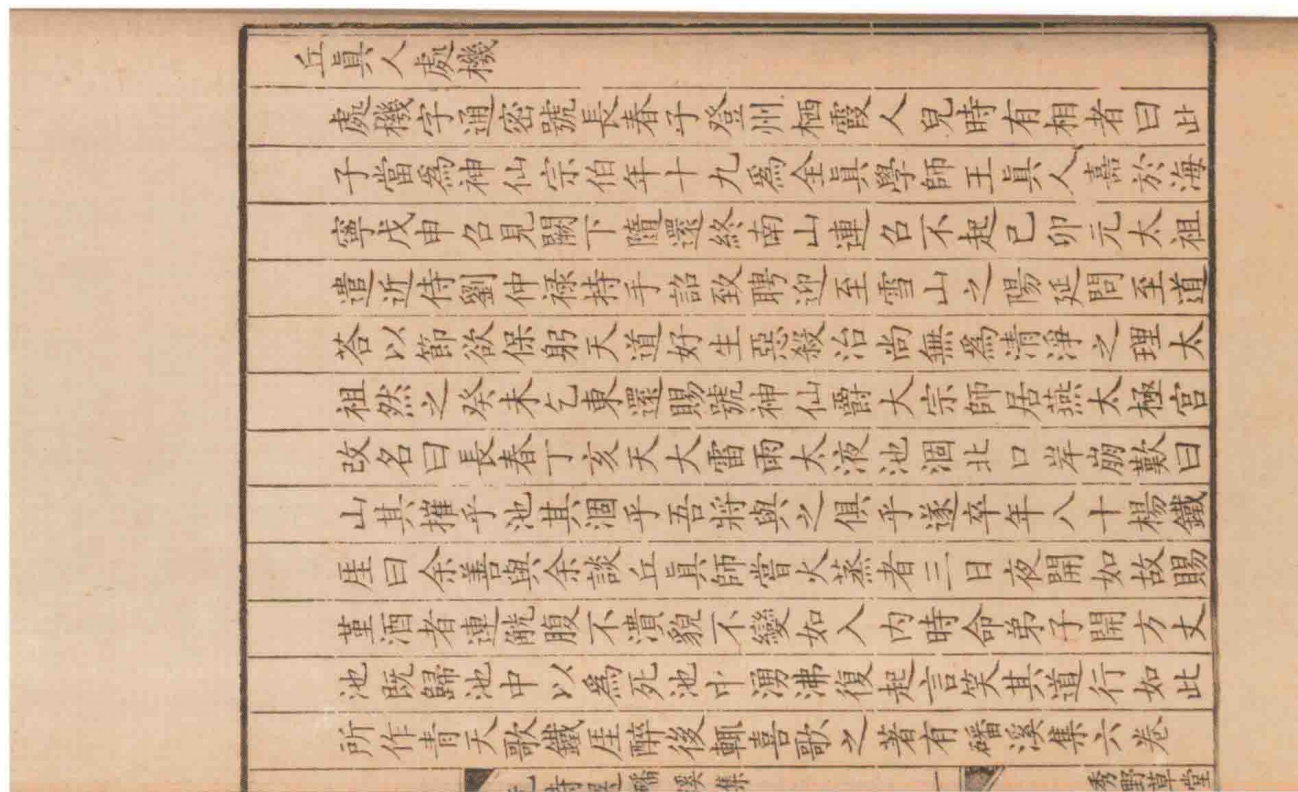 丘眞人處機
處機字通密號長春子登州栖霞人兒時有相者曰此
子當爲神仙宗伯年十九爲全眞學師王眞人嘉於海
寧戊申召見闕下隨還終南山連召不起已卯元太祖
遣近侍劉仲祿持手詔致聘迎至雪山之陽延問至道
答以節欲保躬天道好生惡殺治尚無爲清淨之理太
祖然之癸未乞東還賜號神仙爵大宗師居燕太極宮
改名曰長春丁亥天大雷雨太液池涸北口岸崩歎曰
山其摧乎池其涸乎吾將與之俱乎遂卒年八十楊鐵
厓曰余善與余談丘眞師嘗火蒸者三日夜開如故賜
堇酒者連觥腹不潰貌不變如入内時命弟子開方丈
池既歸池中以爲死池中湧沸復起言笑其道行如此
所作青天歌鐵厓醉後輒喜歌之著有磻溪集六卷
元詩選磻溪集 一 秀野草堂